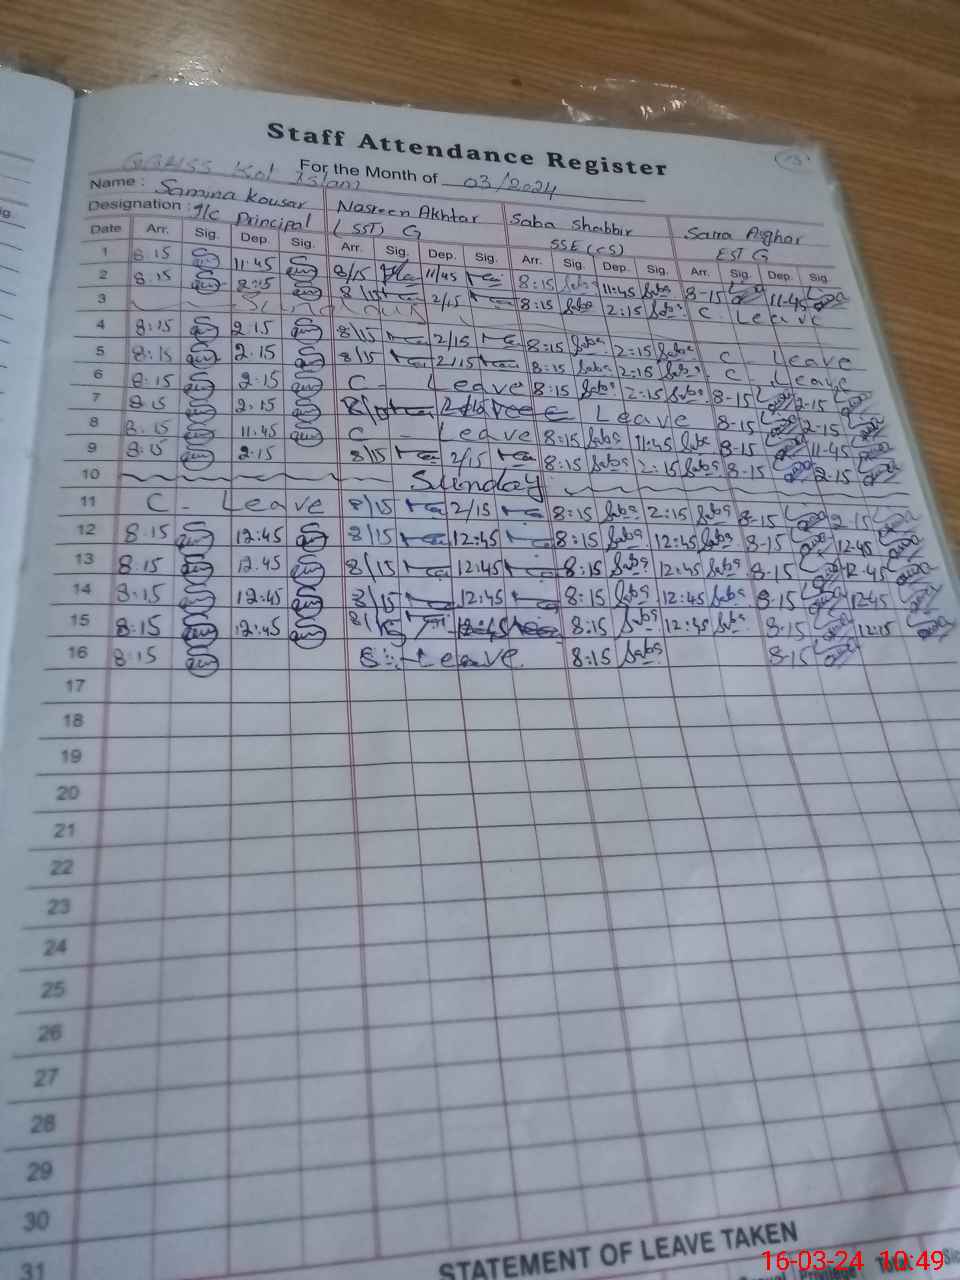 Staff Attendance Register
For the Month of 03/2024
Name : Samina Kousar Nasreen Akhtar Saba Shabbir Saira Asghar
Designation : I/C Principal (SST) G SSE (CS) EST G
Date Arr. Sig. Dep. Sig. Arr. Sig. Dep. Sig. Arr. Sig. Dep. Sig. Arr. Sig. Dep. Sig.
1 8:15 11:45 8/15 11/45 8:15 Saba 11:45 Saba 8-15 11-45
2 8:15 2:15 8/15 2/15 8:15 Saba 2:15 Saba C. Leave
3 Sunday
4 8:15 2.15 8/15 2/15 8:15 Saba 2:15 Saba C - Leave
5 8:15 2.15 8/15 2/15 8:15 Saba 2:15 Saba C - Leave
6 8:15 2:15 C - Leave 8:15 Saba 2:15 Saba 8-15 2-15
7 8:15 2:15 Leave 8-15 2-15
8 8:15 11:45 C - Leave 8:15 Saba 11:45 Saba 8-15 11-45
9 8:15 2.15 8/15 2/15 8:15 Saba 2:15 Saba 8-15 2-15
10 Sunday
11 C - Leave 8/15 2/15 8:15 Saba 2:15 Saba 8-15 2-15
12 8.15 12:45 8/15 12:45 8:15 Saba 12:45 Saba 8-15 12-45
13 8.15 12.45 8/15 12:45 8:15 Saba 12:45 Saba 8-15 12-45
14 8:15 12:45 8/15 12:45 8:15 Saba 12:45 Saba 8-15 12-45
15 8:15 12:45 8/15 12:45 8:15 Saba 12:45 Saba 8-15 12:15
16 8:15 Leave 8:15 Saba 8-15
17
18
19
20
21
22
23
24
25
26
27
28
29
30
31
STATEMENT OF LEAVE TAKEN
16-03-24 10:49